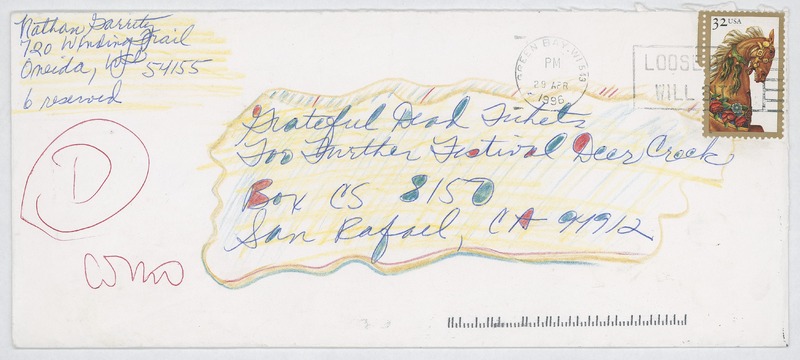 Nathan Garrity
720 Winding Trail
Oneida, WI 54155
6 reserved
GREEN BAY, WI 543
PM
29 APR
1996
LOOSE
WILL
32 USA
Grateful Dead Tickets
For Further Festival Deer Creek
Box CS 8150
San Rafael, CA 94912
D